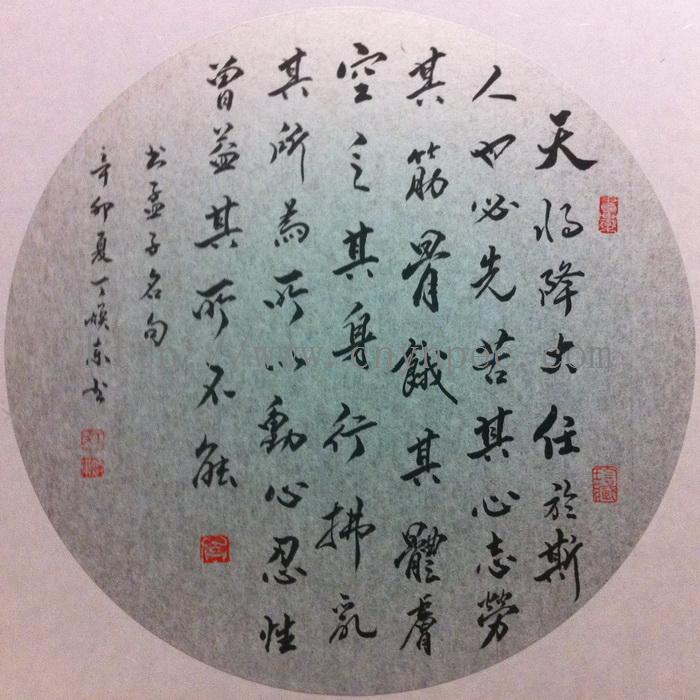 天将降大任於斯
人也必先苦其心志勞
其筋骨餓其體膚
空乏其身行拂乱
其所為所以動心忍性
曾益其所不能
书孟子名句
辛卯夏丁焕东书